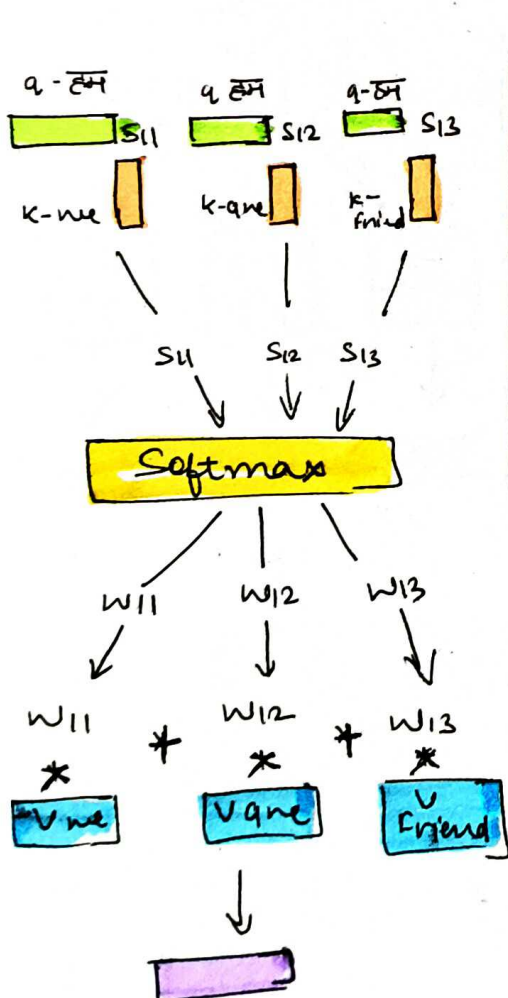 q - हम q हम q-हम
S11 S12 S13
K-we K-are K-Friend
S11 S12 S13
Softmax
W11 W12 W13
W11 + W12 + W13
* * *
V we V are V Friend